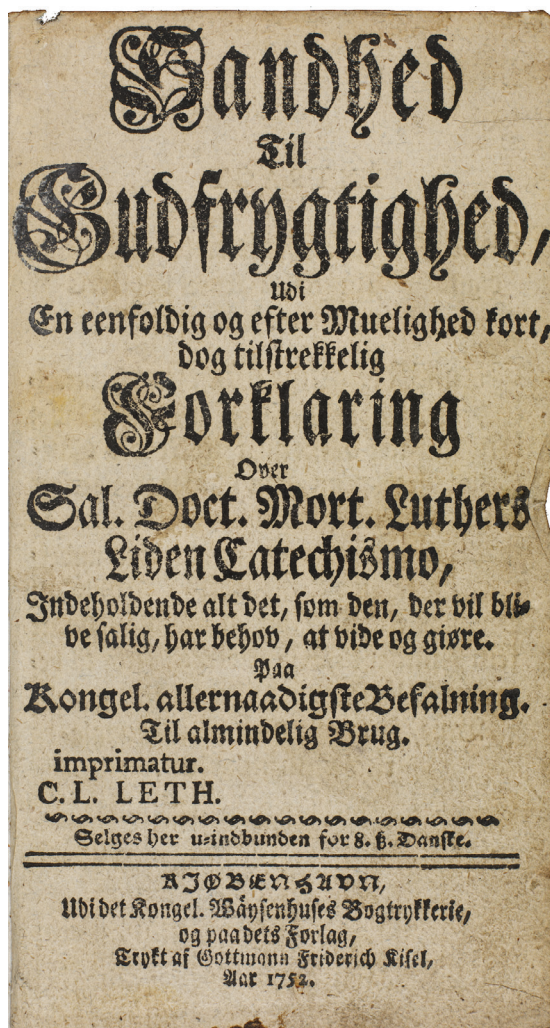 Sandhed
Til
Gudfrygtighed,
Udi
En eenfoldig og efter Muelighed kort,
dog tilstrekkelig
Forklaring
Over
Sal. Doct. Mort. Luthers
Liden Catechismo,
Indeholdende alt det, som den, der vil bli-
ve salig, har behov, at vide og giøre.
Paa
Kongel. allernaadigste Befalning.
Til almindelig Brug.
imprimatur.
C. L. LETH.
Selges her u-indbunden for 8. ß. Danske.
KJØBENHAVN,
Udi det Kongel. Wäysenhuses Bogtrykkerie,
og paa dets Forlag,
Trykt af Gottmann Friderich Kisel,
Aar 1752.